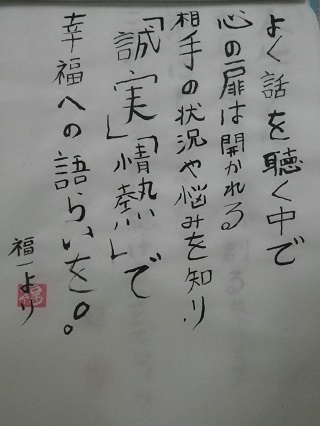 よく話を聴く中で
心の扉は開かれる
相手の状況や悩みを知り
「誠実」「情熱」で
幸福への語らいを。
福一より
福